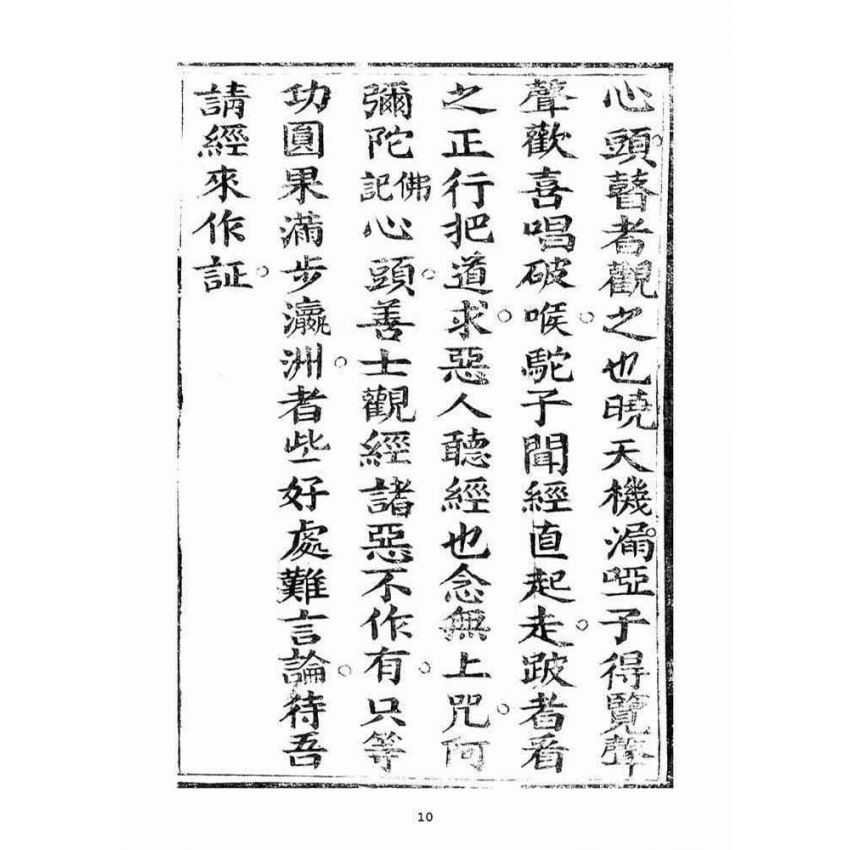 心頭。瞽者觀之也曉天機漏。啞子得覽聲
聲歡喜唱破喉。駝子聞經直起走。跛者看
之正行把道求。惡人聽經也念無上咒。阿
彌陀佛記心頭。善士觀經諸惡不作有。只等
功圓果滿步瀛洲。者些好處難言論。待吾
請經來作証。
10